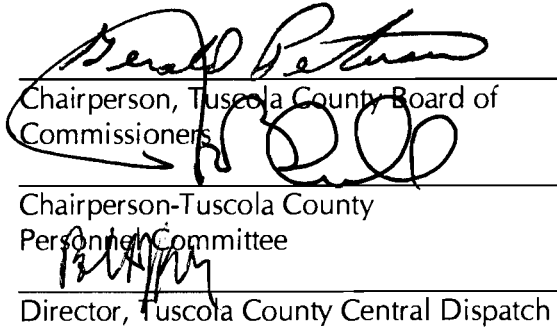 Gerald Peterson
Chairperson, Tuscola County Board of
Commissioners
Chairperson-Tuscola County
Personnel Committee
Director, Tuscola County Central Dispatch